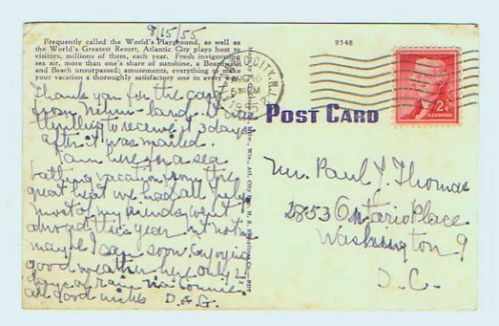 8/15/55
Frequently called the World's Playground, as well as
the World's Greatest Resort, Atlantic City plays host to
visitors, millions of them, each year. Fresh invigorating
sea air, more than one's share of sunshine, a Boardwalk
and Beach unsurpassed; amusements, everything to make
your vacation a thoroughly satisfactory one in every way.
Thank you for the card
from
land. It was
thrilling to receive it 3 days
after it was mailed.
I am here for a sea
bathing vacation from the
great heat we had all July.
Most of my friends went
abroad this year but not me
maybe I can soon. Enjoying
good weather here only 1
day of rain via Connie.
all good wishes D. & G.
9548
CITY, N.J.
5 30 PM
1955
2¢
POST CARD
Mr. Paul J. Thomas
2853 Ontario Place
Washington 9
D.C.